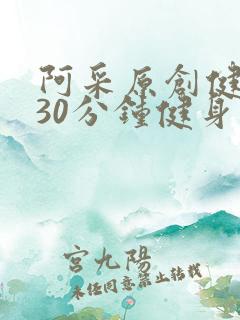 阿采原創健
30分鐘健身
宮九陽
未經同意禁止轉載